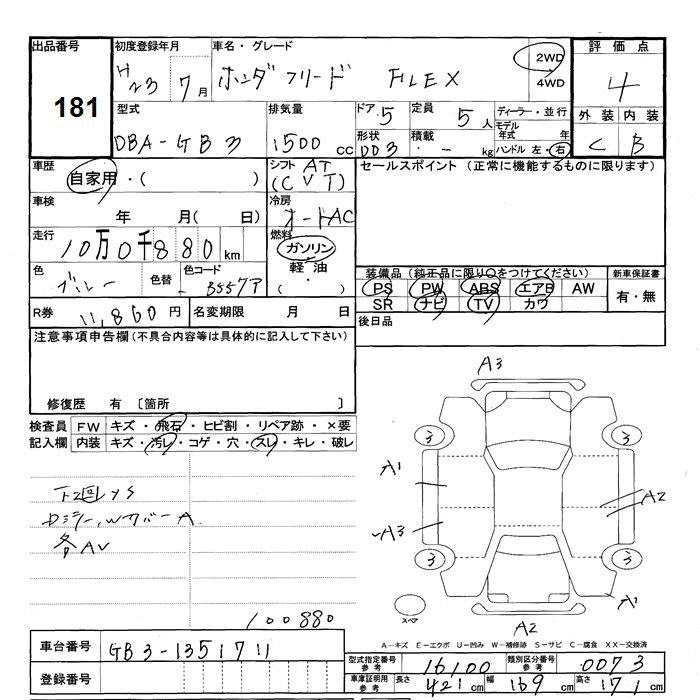 出品番号 初度登録年月 車名・グレード 評価点
181
H23 7月 ホンダ フリード FLEX 2WD 4WD 4
型式 排気量 ドア 5 定員 5人 ディーラー・並行 外装 内装
DBA-GB3 1500cc 形状 DD3 積載 ・ - kg モデル年式 年 C B
ハンドル 左・右
車歴 シフト AT セールスポイント (正常に機能するものに限ります)
自家用・( ) (CVT)
車検 冷房
年 月( 日) オートAC
走行 燃料
10万0千880km ガソリン
色 色替 色コード 軽油 装備品 (純正品に限り○をつけてください) 新車保証書
ブルー B557P ( ・ ) PS PW ABS エアB AW 有・無
SR ナビ TV カワ
R券 11,860円 名変期限 月 日 後日品
注意事項申告欄(不具合内容等は具体的に記入して下さい)
修復歴 有 〔箇所 〕
検査員 FW キズ・飛石・ヒビ割・リペア跡・×要
記入欄 内装 キズ・汚レ・コゲ・穴・スレ・キレ・破レ
A3
3 3
A1 A2
A3
3 3
A1
スペア
A2
各AV
100880
A-キズ E-エクボ U-凹み W-補修跡 S-サビ C-腐食 XX-交換済
車台番号 GB3-1351711
型式指定番号 参考 16100 類別区分番号 参考 0073
登録番号 車庫証明用 参考 長さ 421cm 幅 169cm 高さ 171cm